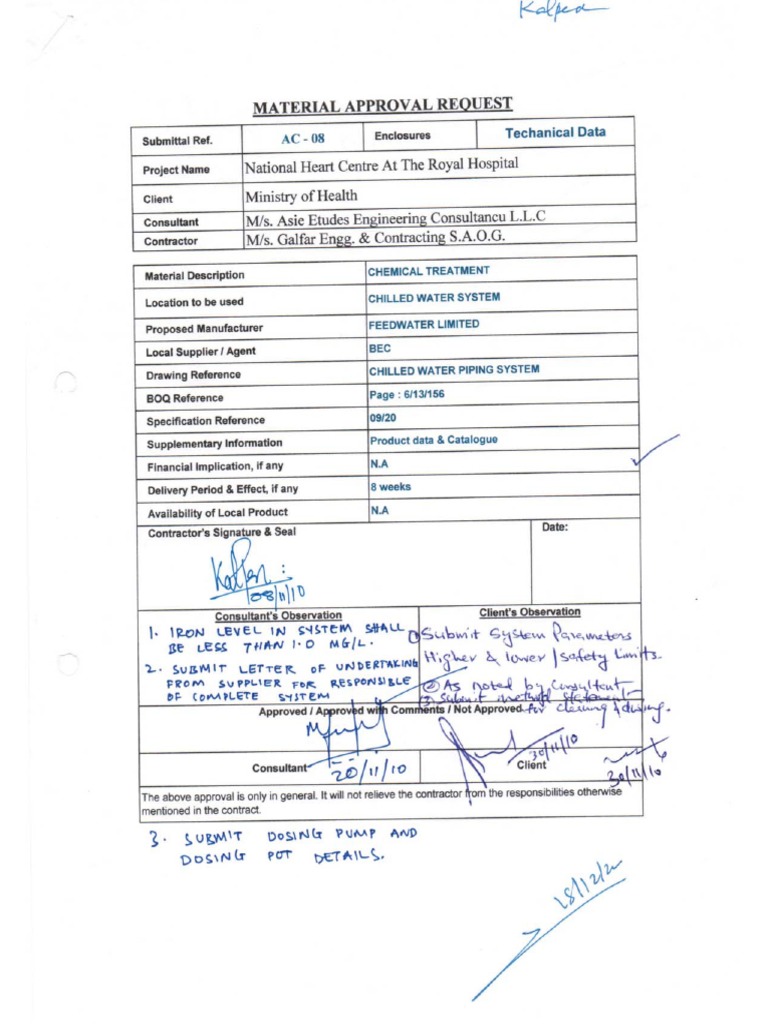 Kalpen
MATERIAL APPROVAL REQUEST
Submittal Ref. AC - 08 Enclosures Techanical Data
Project Name National Heart Centre At The Royal Hospital
Client Ministry of Health
Consultant M/s. Asie Etudes Engineering Consultancu L.L.C
Contractor M/s. Galfar Engg. & Contracting S.A.O.G.
Material Description CHEMICAL TREATMENT
Location to be used CHILLED WATER SYSTEM
Proposed Manufacturer FEEDWATER LIMITED
Local Supplier / Agent BEC
Drawing Reference CHILLED WATER PIPING SYSTEM
BOQ Reference Page : 6/13/156
Specification Reference 09/20
Supplementary Information Product data & Catalogue
Financial Implication, if any N.A
Delivery Period & Effect, if any 8 weeks
Availability of Local Product N.A
Contractor's Signature & Seal Date:
Kalpen
08/11/10
Consultant's Observation
1. IRON LEVEL IN SYSTEM SHALL
BE LESS THAN 1.0 MG/L.
2. SUBMIT LETTER OF UNDERTAKING
FROM SUPPLIER FOR RESPONSIBLE
OF COMPLETE SYSTEM
Client's Observation
① Submit System Parameters
Higher & lower / Safety Limits.
② As noted by Consultant
3. Submit method statement
for cleaning & dosing.
Approved / Approved with Comments / Not Approved
Consultant 20/11/10
30/11/10
Client
30/11/10
The above approval is only in general. It will not relieve the contractor from the responsibilities otherwise
mentioned in the contract.
3. SUBMIT DOSING PUMP AND
DOSING POT DETAILS.